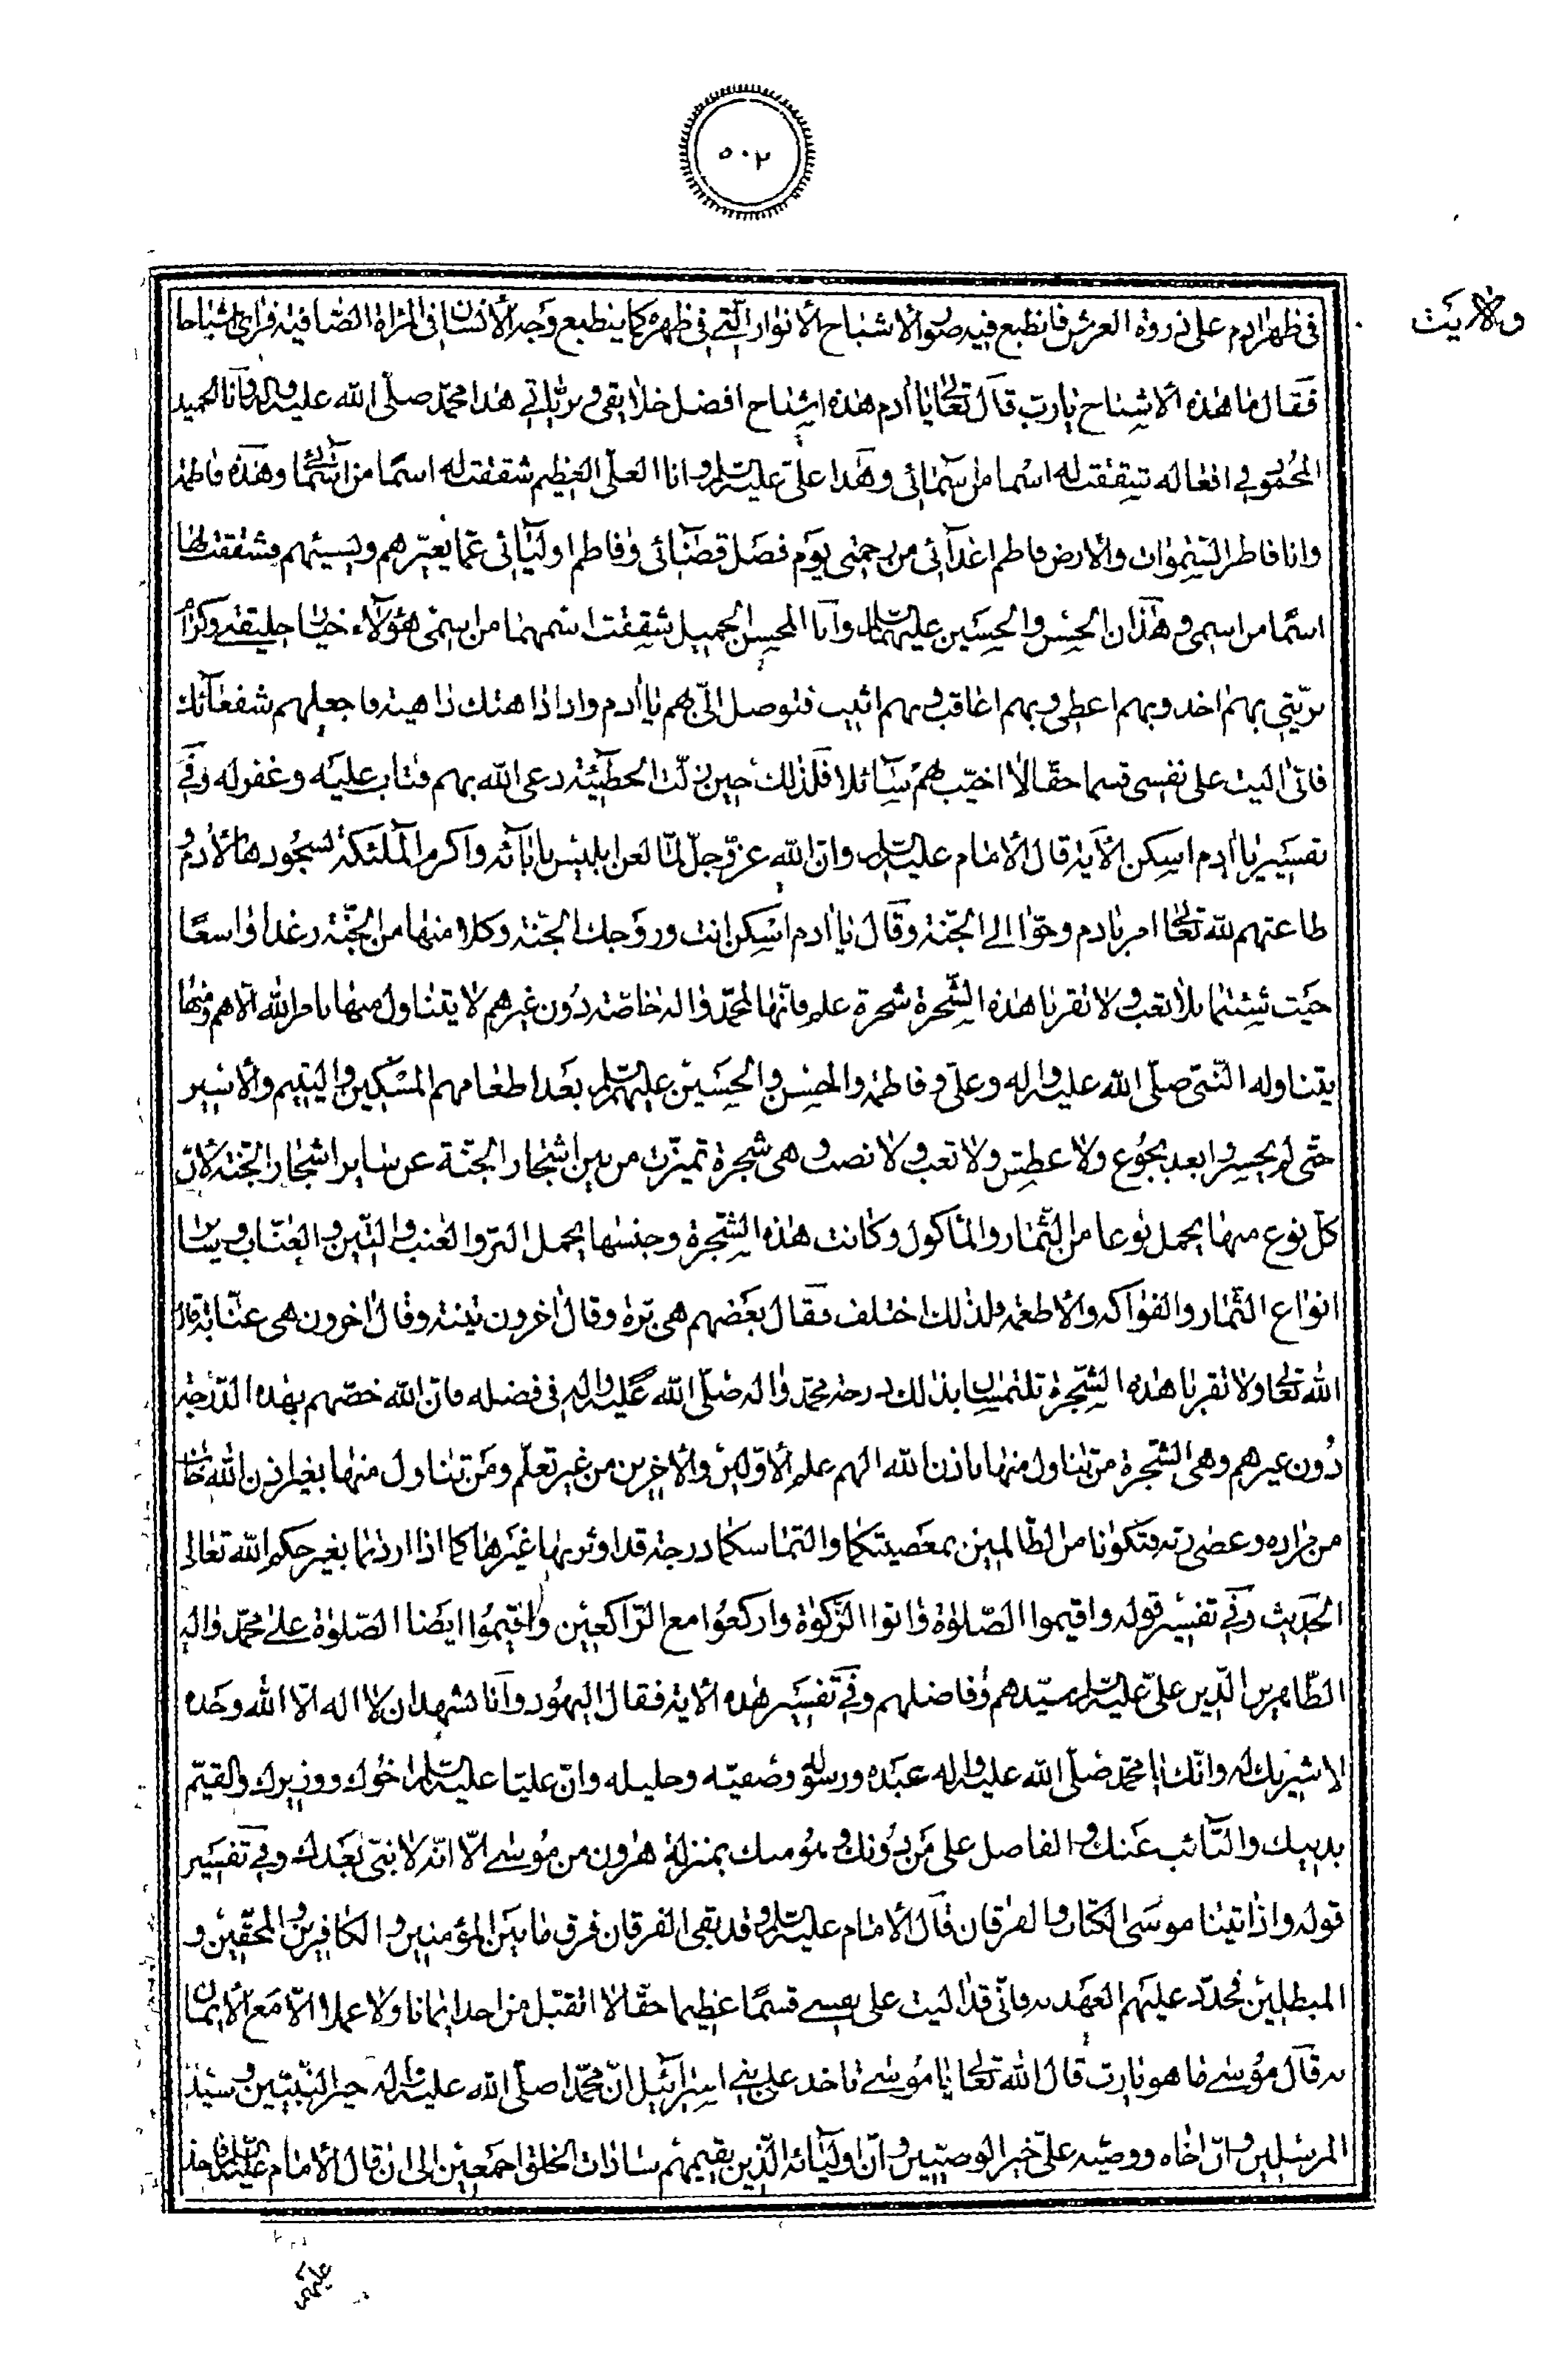 ٥٠٢
ولایت
فی ظهر ادم علی ذروة العرش فانطبع فیه صور الاشباح الانوار التی فی ظهره کما ینطبع وجه الانسان فی المراة الصافیة فرای اشباحا
فقال ما هذه الاشباح یا رب قال تعالی یا ادم هذه اشباح افضل خلایقی و بریاتی هذا محمد صلی الله علیه واله وانا الحمید
المحمود فی افعاله شققت له اسما من اسمائی وهذا علی علیه السلم وانا العلی العظیم شققت له اسما من اسمائی وهذه فاطمة
وانا فاطر السموات والارض فاطم اعدائی من رحمتی یوم فصل قضائی وفاطم اولیائی عما یعیرهم ویسیئهم فشققت لها
اسما من اسمی و هذان الحسن والحسین علیهما السلام وانا المحسن الجمیل شققت اسمهما من اسمی هؤلاء خیار خلیقتی وکرام
بریتی بهم اخذ وبهم اعطی وبهم اعاقب وبهم اثیب فتوصل الی بهم یا ادم واذا دهتک داهیة فاجعلهم شفعائک
فانی الیت علی نفسی قسما حقا لا اخیب بهم سائلا فلذلک حین زلت الخطیئة دعی الله بهم فتاب علیه وغفر له وفی
تفسیر یا ادم اسکن الآیة قال الامام علیه السلم وان الله عز وجل لما لعن ابلیس بابائه واکرم الملئکة لسجودها لادم و
طاعتهم لله تعالی امر بادم وحوا الی الجنة وقال یا ادم اسکن انت وزوجک الجنة وکلا منها من الجنة رغدا واسعا
حیث شئتما بلا تعب ولا تقربا هذه الشجرة شجرة علم فانها لمحمد واله خاصة دون غیرهم لا یتناول منها بامر الله الا هم ومنها
یتناوله النبی صلی الله علیه واله وعلی وفاطمة والحسن والحسین علیهم السلم بعد اطعامهم المسکین والیتیم والاسیر
حتی لم یحسوا بعد بجوع ولا عطش ولا تعب ولا نصب وهی شجرة تمیزت من بین اشجار الجنة عن سایر اشجار الجنة لان
کل نوع منها یحمل نوعا من الثمار والماکول وکانت هذه الشجرة وجنسها یحمل البر والعنب والتین والعناب وسایر
انواع الثمار والفواکه والاطعمة ولذلک اختلف فقال بعضهم هی برة وقال اخرون تینة وقال اخرون هی عنابة قال
الله تعالی ولا تقربا هذه الشجرة تلتمسان بذلک درجة محمد واله صلی الله علیه واله فی فضله فان الله خصهم بهذه الدرجة
دون غیرهم وهی الشجرة من تناول منها باذن الله الهم علم الاولین والاخرین من غیر تعلم ومن تناول منها بغیر اذن الله خاب
من مراده وعصی ربه فتکونا من الظالمین بمعصیتکما والتماسکما درجة قد اوثر بها غیرها کما اذا اردتما بغیر حکم الله تعالی
الحدیث وفی تفسیر قوله واقیموا الصلوة واتوا الزکوة وارکعوا مع الراکعین واقیموا ایضا الصلوة علی محمد واله
الطاهرین الذین علی علیه السلم سیدهم وفاضلهم وفی تفسیر هذه الایة فقال الیهود وانا نشهد ان لا اله الا الله وحده
لا شریک له وانک یا محمد صلی الله علیه واله عبده ورسوله وصفیه وخلیله وان علیا علیه السلم اخوک ووزیرک والقیم
بدینک والنائب عنک والفاصل علی من دونک و منک بمنزلة هرون من موسی الا انه لا نبی بعدک وفی تفسیر
قوله واذ اتینا موسی الکتاب والفرقان قال الامام علیه السلم وقد بقی الفرقان فرق ما بین المؤمنین والکافرین والمحقین و
المبطلین فجدد علیهم العهد به فانی قد الیت علی نفسی قسما عظیما حقا لا اتقبل من احد ایمانا ولا عملا الا مع الایمان
به قال موسی ما هو یا رب قال الله تعالی یا موسی تاخذ علی بنی اسرائیل ان محمدا صلی الله علیه واله خیر النبیین وسید
المرسلین وان اخاه ووصیه علی خیر الوصیین وان اولیائه الذین یقیمهم سادات الخلق اجمعین الی ان قال الامام علیه السلم فاخذ
علیهم